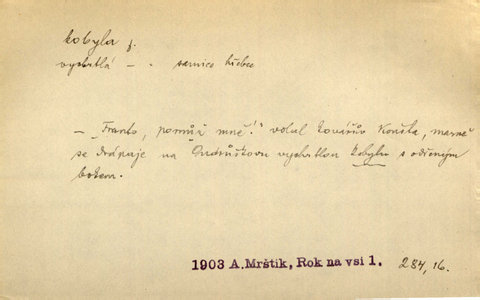 kobyla f.
vychrtlá – . samice hřebce
– „Franto, pomůž mně!" volal Kovářův Konda, marně
se drápaje na Ondrůškovu vychrtlou kobylu s odřeným
bokem.
1903 A.Mrštík, Rok na vsi 1. 284,16.